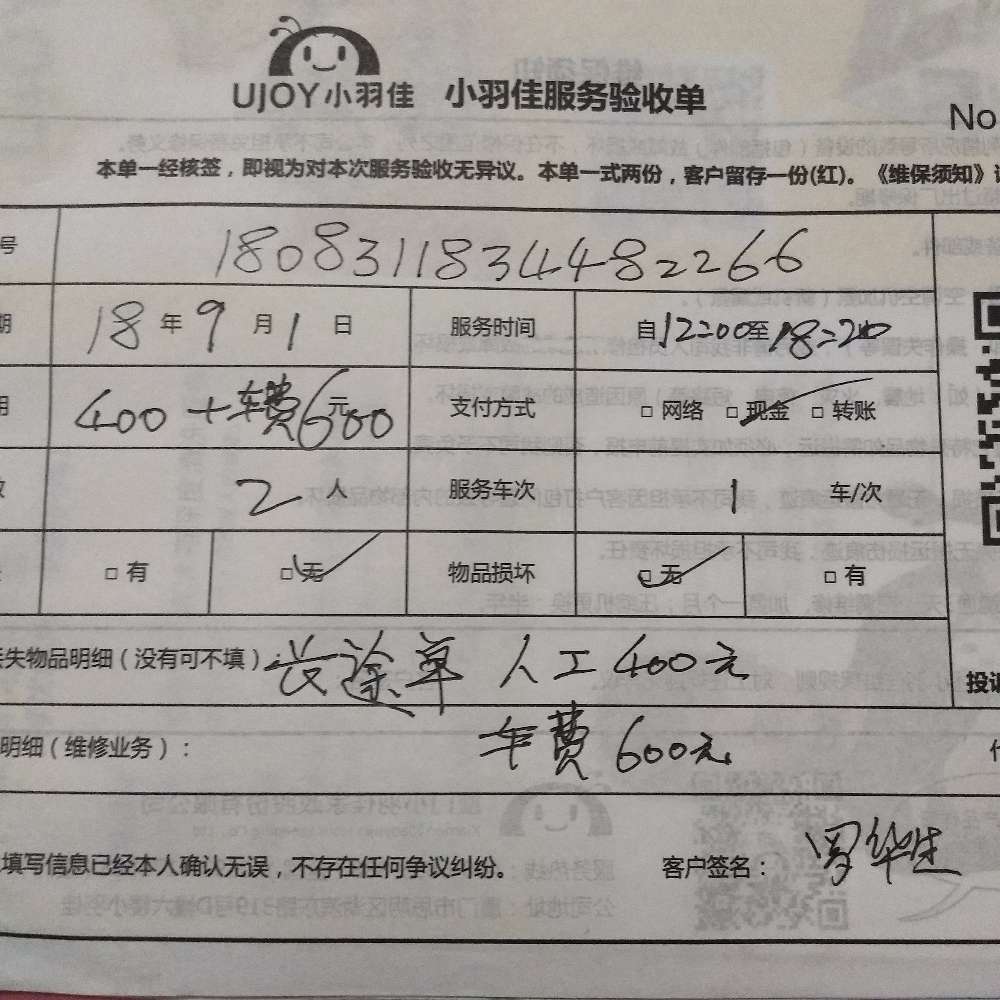 UJOY小羽佳 小羽佳服务验收单
No
本单一经核签，即视为对本次服务验收无异议。本单一式两份，客户留存一份(红)。《维保须知》
号 1808311834482266
期 18年9月1日 服务时间 自12:00至18:20
400+车费600元 支付方式 □网络 □现金 □转账
2人 服务车次 1车/次
□有 □无 物品损坏 □无 □有
失物品明细（没有可不填）: 长途单 人工400元
投诉
明细（维修业务）： 车费600元
填写信息已经本人确认无误，不存在任何争议纠纷。 客户签名：罗华生